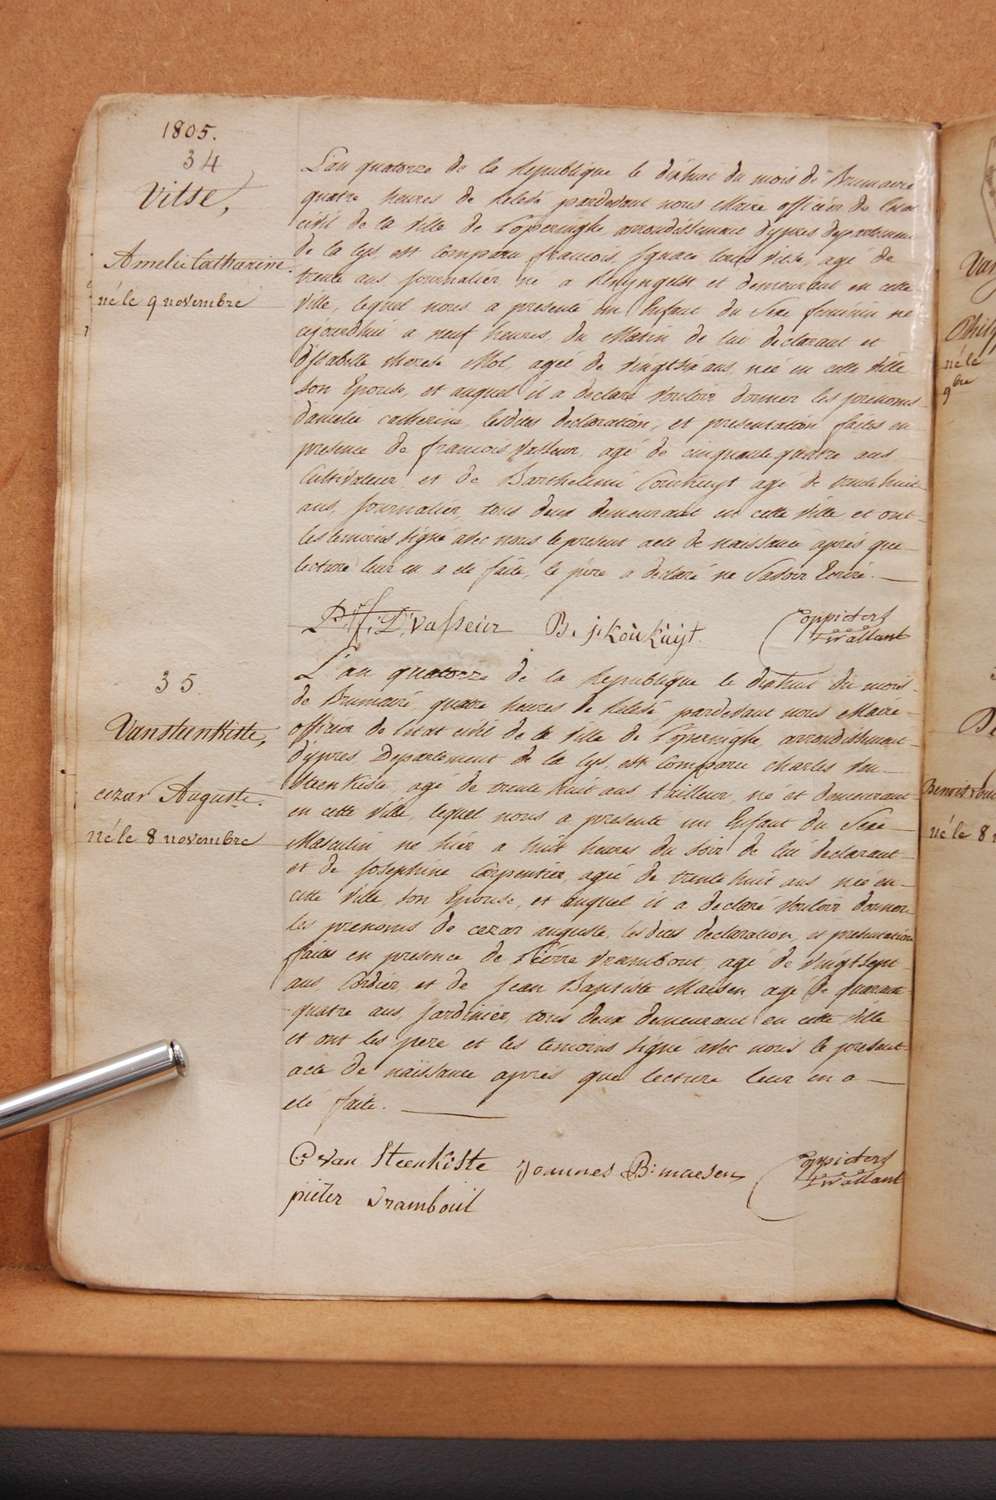 1805.
34
Vitse,
Amelie Catharine
né le 9 novembre
L'an quatorze de la Republique le dixhuit du mois de Brumaire
quatre heures de relevé pardevant nous Maire officier de l'etat
civil de la ville de Poperinghe arrondissement d'ypres departement
de la Lys est comparu francois Ignace Vitse, agé de
trente ans journalier né a et demeurant en cette
ville, lequel nous a presenté un Enfant du Sexe feminin né
aujourdhui a neuf heures du Matin de lui declarant et
d'Isabelle therese Mol, agée de vingtsix ans, née en cette ville
son Epouse, et auquel il a declaré vouloir donner les prenoms
d'amelie catherine, lesdites declaration, et presentation faites en
presence de francois Vasseur, agé de cinquante quatre ans
Cultivateur, et de Barthelemi Coukuyt agé de trente huit
ans, journalier, tous deux demeurant en cette ville et ont
les temoins signé avec nous le present acte de naissance apres que
lecture leur en a ete faite, le pere a declaré ne Savoir Ecrire.
P. f. D. vasseur B. j. Koukuijt. Coppieters
Wallant
35
Vansteenkiste,
cezar Auguste.
né le 8 novembre
L'an quatorze de la Republique le dixhuit du mois
de Brumaire, quatre heures de relevé pardevant nous Maire
officier de l'etat civil de la ville de Poperinghe, arrondissement
d'ypres Departement de la Lys, est comparu charles Van
Steenkiste, agé de trente huit ans tailleur, né et demeurant
en cette ville, lequel nous a presenté un Enfant du Sexe
Masculin né hier a huit heures du soir de lui declarant
et de Josephine Carpentier, agée de trente huit ans née en
cette ville, son Epouse, et auquel il a declaré vouloir donner
les prenoms de cezar auguste, lesdites declaration, et presentation
faites en presence de Pierre Vrambout, agé de vingtsept
ans Cordier, et de Jean Baptiste Maesen agé de quarante
quatre ans, Jardinier, tous deux demeurant en cette ville
et ont les pere et les temoins signé avec nous le present
acte de naissance apres que lecture leur en a
ete faite.
C. van Steenkiste Joannes B: maesen Coppieters
Wallant
pieter Vrambout
Van
Philip
né le
9bre
Benoit
né le 8